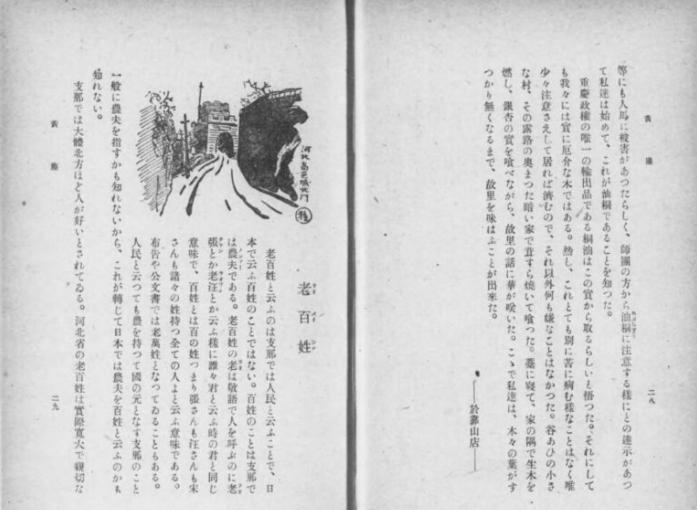 黄塵
二八
等にも人馬に被害があつたらしく、師團の方から油桐に注意する様にとの達示があつ
て私達は始めて、これが油桐であることを知つた。
重慶政權の唯一の輸出品である桐油はこの實から取るらしいと悟つた。それにして
も我々には實に厄介な木ではある。然し、これとても別に苦に病む様なことはなく唯
少々注意さえして居れば濟むので、それ以外何も嫌なことはなかつた。谷あひの小さ
な村、その露路の奥まつた暗い家で茸すら燒いて喰つた。藁に寢て、家の隅で生木を
燃し、銀杏の實を喰べながら、故里の話に華が咲いた。こゝで私達は、木々の葉がす
つかり無くなるまで、故里を味はふことが出來た。
——於壽山店——
黄塵
二九
河北高邑城北門
老百姓
老百姓と云ふのは支那では人民と云ふことで、日
本で云ふ百姓のことではない。百姓のことは支那で
は農夫である。老百姓の老は敬語で人を呼ぶのに老
張とか老汪とか云ふ樣に誰々君と云ふ時の君と同じ
意味で、百姓とは百の姓つまり張さんも汪さんも宋
さんも諸々の姓持つ全ての人よと云ふ意味である。
布告や公文書では老萬姓となつてゐることもある。
人民と云つても農を持つて國の元となす支那のこと
一般に農夫を指すかも知れないから、これが轉じて日本では農夫を百姓と云ふのかも
知れない。
支那では大體北方ほど人が好いとされてゐる。河北省の老百姓は實際寛大で親切な